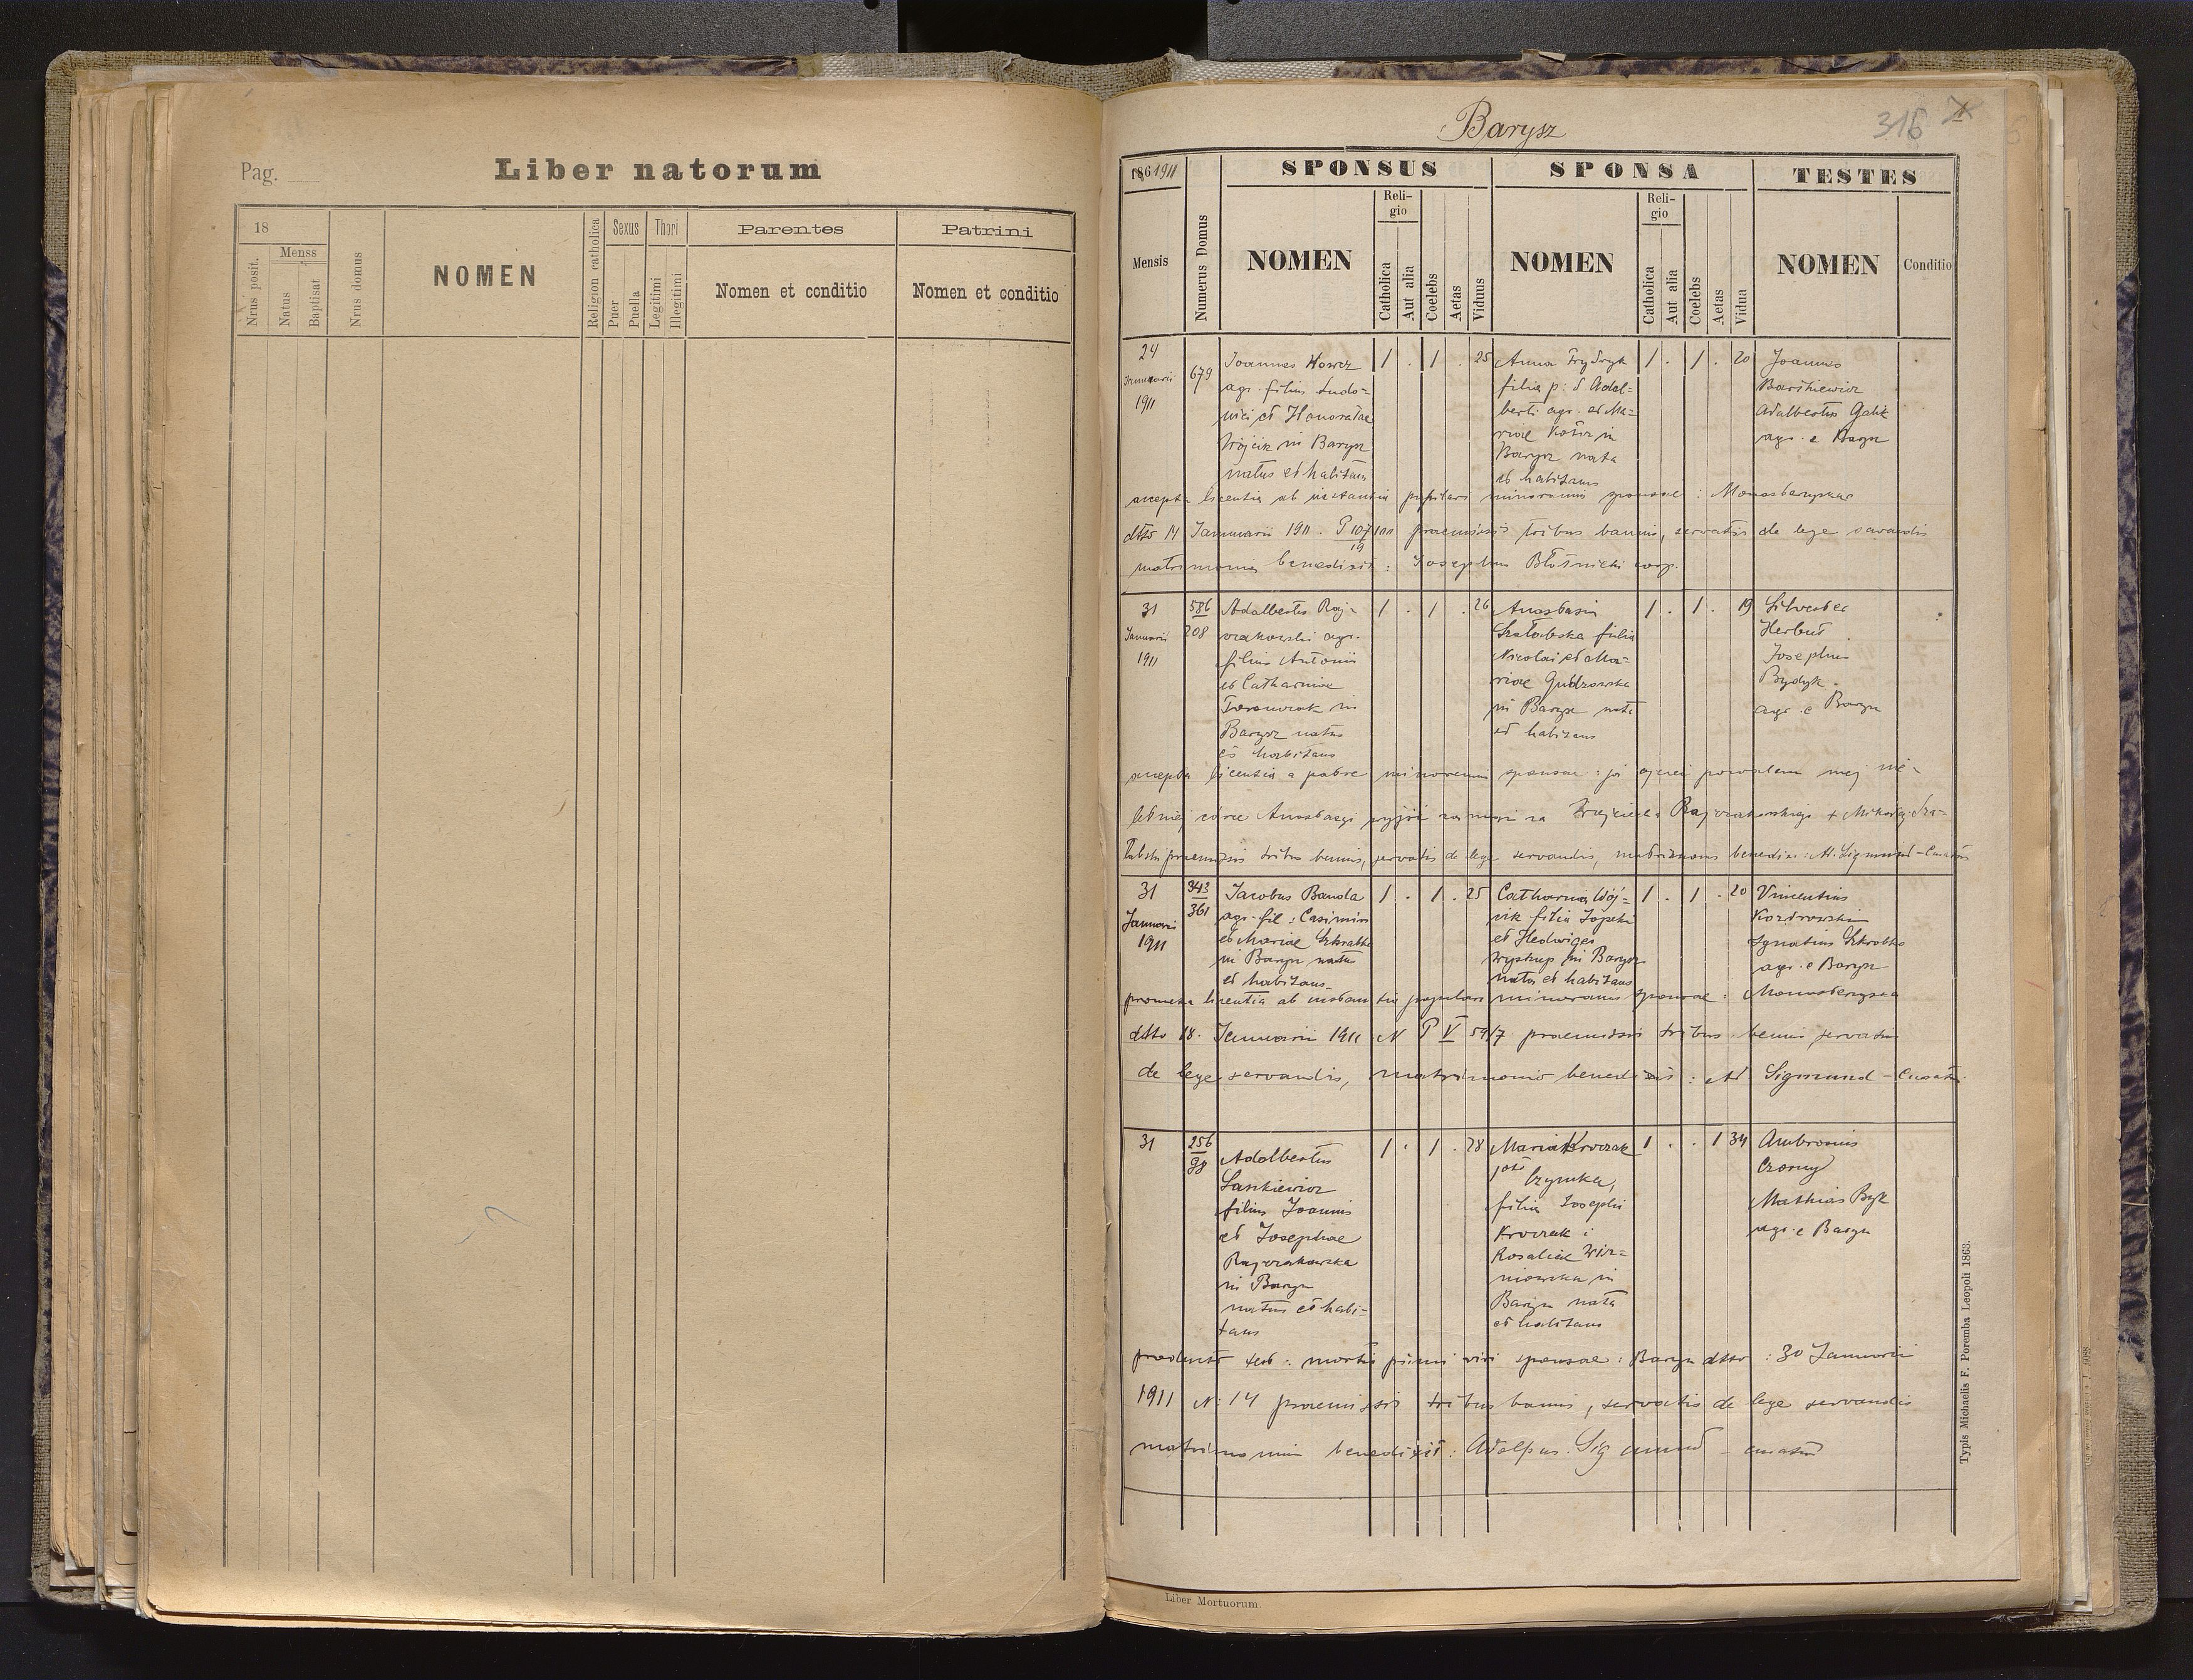 Pag.
Liber natorum
18
Menss
Nrus posit.
Natus
Baptisat
Nrus domus
NOMEN
Religion catholica
Sexus
Puer
Puella
Thori
Legitimi
Illegitimi
Parentes
Nomen et conditio
Patrini
Nomen et conditio
Barysz
316
1861911
Mensis
Numerus Domus
SPONSUS
NOMEN
Reli-
gio
Catholica
Aut alia
Coelebs
Aetas
Viduus
SPONSA
NOMEN
Reli-
gio
Catholica
Aut alia
Coelebs
Aetas
Vidua
TESTES
NOMEN
Conditio
24
Januarii
1911
679
Joannes
agr. filius Ludo-
vici et Honoratae
Wójcik in Barysz
natus et habitans
1 . 1 . 25
Anna Frydryk
filia p. d. Adal-
berti agr. et Ma-
riae in
Barysz nata
et habitans
1 . 1 . 20
Joannes
Barskiewicz
Adalbertus Galik
agr. e Barysz
accepta licentia ab instantia pupilari minorennis sponsae : Monasterzyskae
dtto 14 Januarii 1911 . P praemissis tribus bannis, servatis de lege servandis
matrimonium benedixit : Josephus Błotnicki coop.
31
Januarii
1911
586
208
Adalbertus Raj-
czakowski agr.
filius Antonii
et Catharinae
in
Barysz natus
et habitans
1 . 1 . 26
Anastasia
Szałabska filia
Nicolai et Ma-
riae Gudzowska
in Barysz nata
et habitans
1 . 1 . 19
Silvester
Herbut
Josephus
Bydyk
agr. e Barysz
accepta licentia a patre minorennis sponsae : ja ojciec pozwalam mej nie-
letniej córce Anastazyi wyjść za mąż za Wojciecha Rajczakowskiego + Mikołaj Sza-
łabski praemissis tribus bannis, servatis de lege servandis, matrimonium benedixi : A. Sigmund - Curatus
31
Januarii
1911
343
361
Jacobus Banda
agr. fil : Casimiri
et Mariae
in Barysz natus
et habitans
1 . 1 . 25
Catharina Wój-
cik filia Josephi
et Hedwiges
Wyskup in Barysz
nata et habitans
1 . 1 . 20
Vincentius
Ignatius
agr. e Barysz
licentia ab instantia pupilari minorennis sponsae : Monasterzyska
dtto 18. Januarii 1911 N P V 59/7 praemissis tribus bannis servatis
de lege servandis, matrimonio benedixit : Ad Sigmund - Curatus
31
256
98
Adalbertus
Laszkiewicz
filius Joannis
et Josephae
Rajczakowska
in Barysz
natus et habi-
tans
1 . 1 . 28
Maria Kroczak
Czymka,
filia Josephi
Kroczak i
Rosaliae Wiz-
niowska in
Barysz nata
et habitans
1 . . 1 34
Ambrosius
Czorny
Mathias Byk
agr. e Barysz
producto test : mortis primi viri sponsae : Barysz dtto : 30 Januarii
1911 N: 14 praemissis tribus bannis, servatis de lege servandis
matrimonium benedixit : Adolpus Sigmund - curatus
Typis Michaelis F. Poremba Leopoli 1863.
Liber Mortuorum.